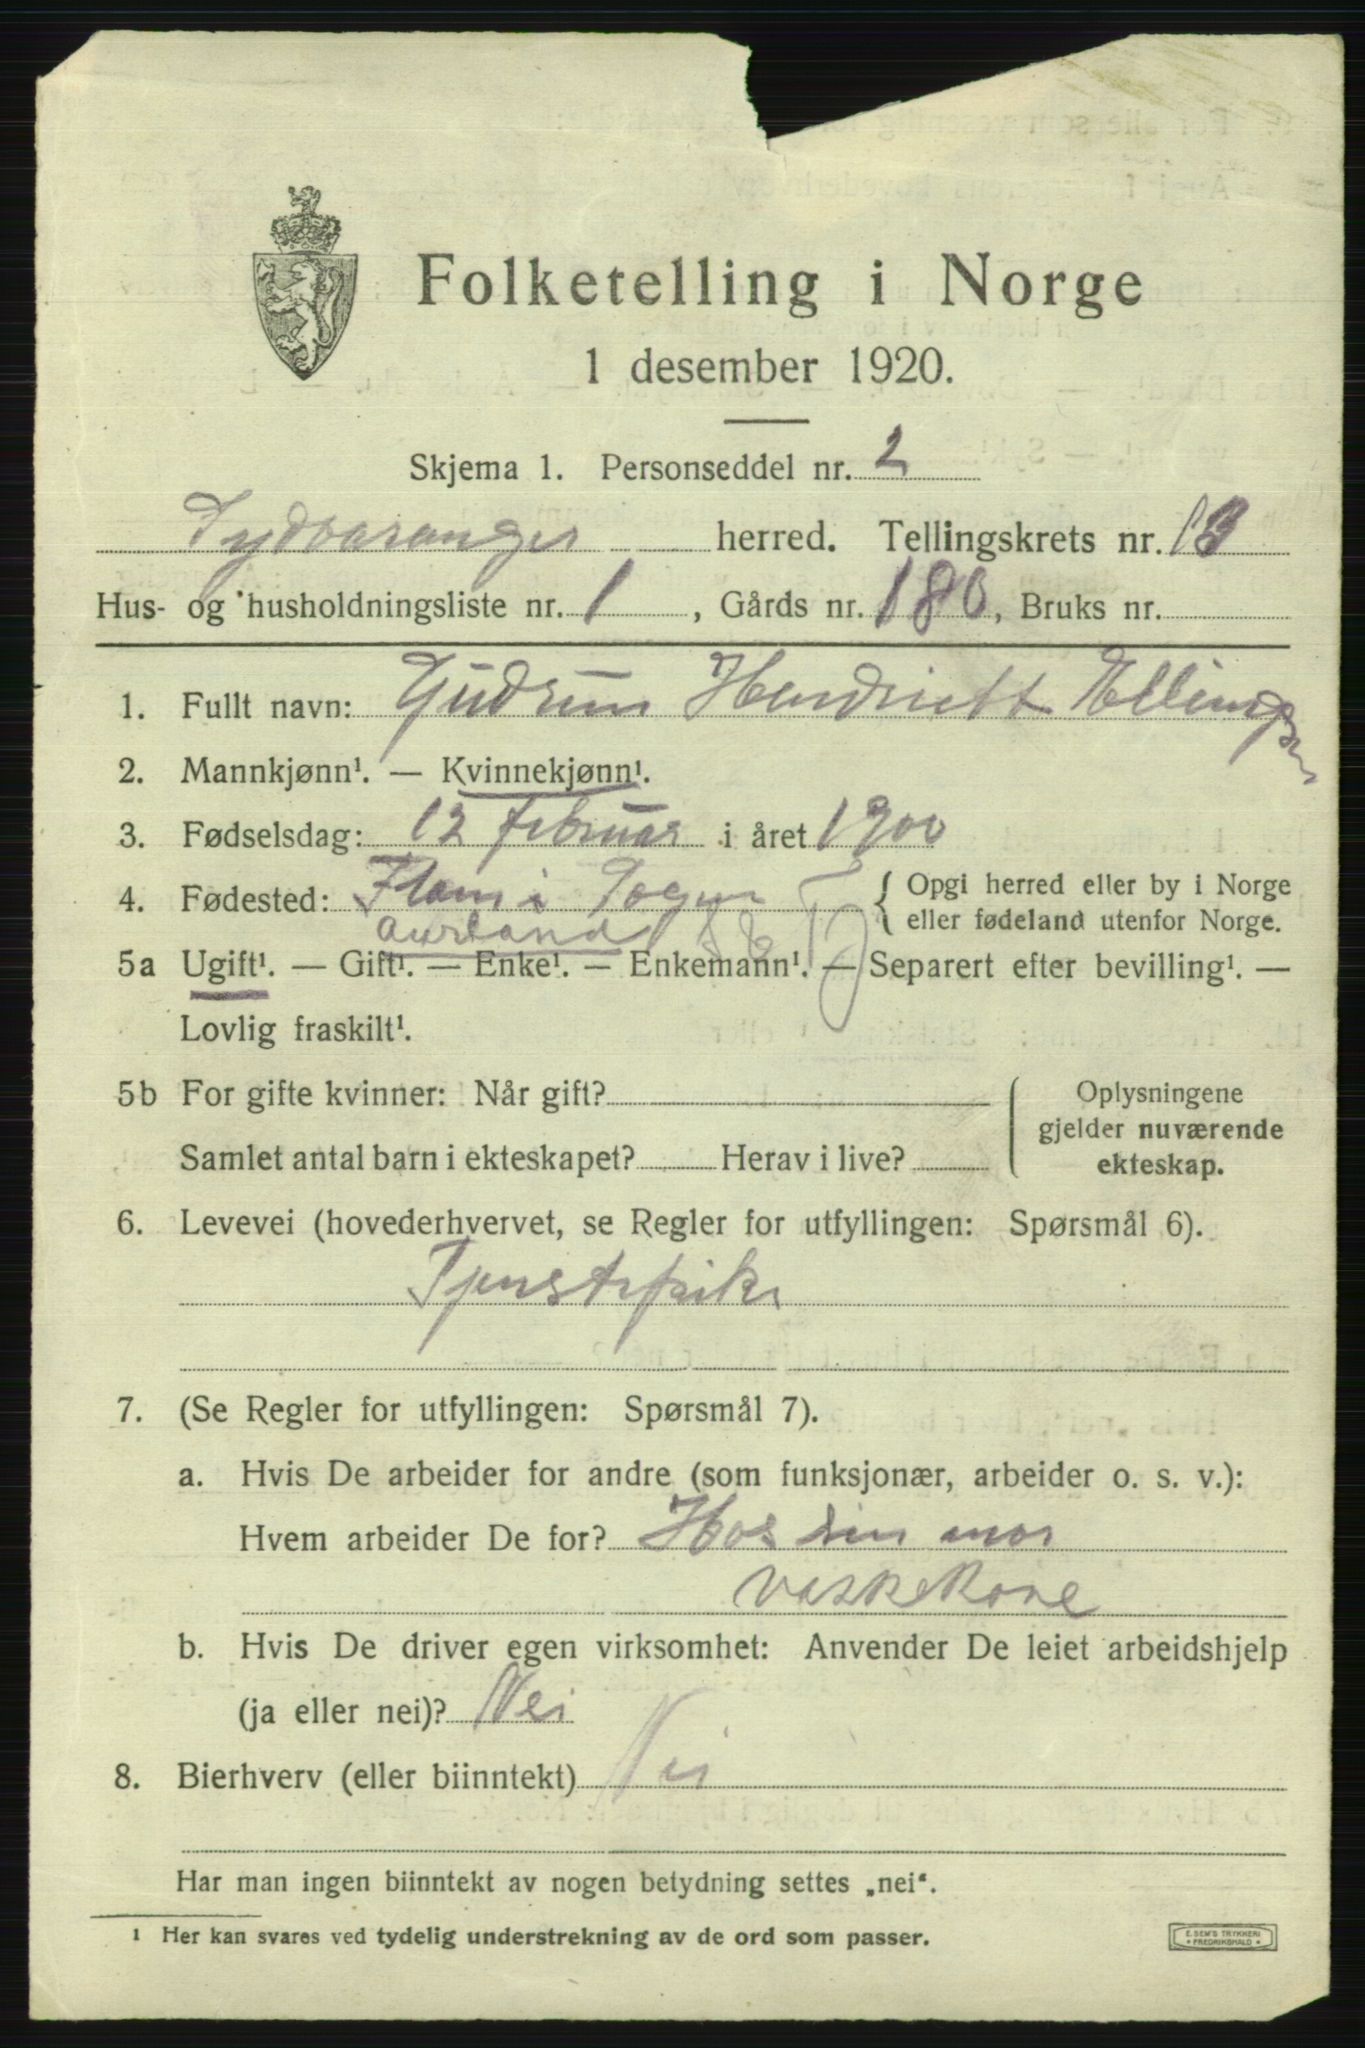 Folketelling i Norge
1 desember 1920.
Skjema 1. Personseddel nr. 2
Sydvaranger herred. Tellingskrets nr. 13
Hus- og husholdningsliste nr. 1, Gårds nr. 180, Bruks nr.
1. Fullt navn: Gudrun Hendriett Ellingsen
2. Mannkjønn¹. — Kvinnekjønn¹.
3. Fødselsdag: 12 februar i året 1900
4. Fødested: Flam i Sogn { Opgi herred eller by i Norge
eller fødeland utenfor Norge.
Aurland
5a Ugift¹. — Gift¹. — Enke¹. — Enkemann¹. — Separert efter bevilling¹. —
Lovlig fraskilt¹.
5b For gifte kvinner: Når gift? { Oplysningene
gjelder nuværende
Samlet antal barn i ekteskapet? Herav i live? ekteskap.
6. Levevei (hovederhvervet, se Regler for utfyllingen: Spørsmål 6).
Tjenstepike
7. (Se Regler for utfyllingen: Spørsmål 7).
a. Hvis De arbeider for andre (som funksjonær, arbeider o. s. v.):
Hvem arbeider De for? Hos sin mor
vaskekone
b. Hvis De driver egen virksomhet: Anvender De leiet arbeidshjelp
(ja eller nei)? Nei
8. Bierhverv (eller biinntekt) Nei
Har man ingen biinntekt av nogen betydning settes „nei“.
¹ Her kan svares ved tydelig understrekning av de ord som passer.
E. SEM'S TRYKKERI
• FREDRIKSHALD •